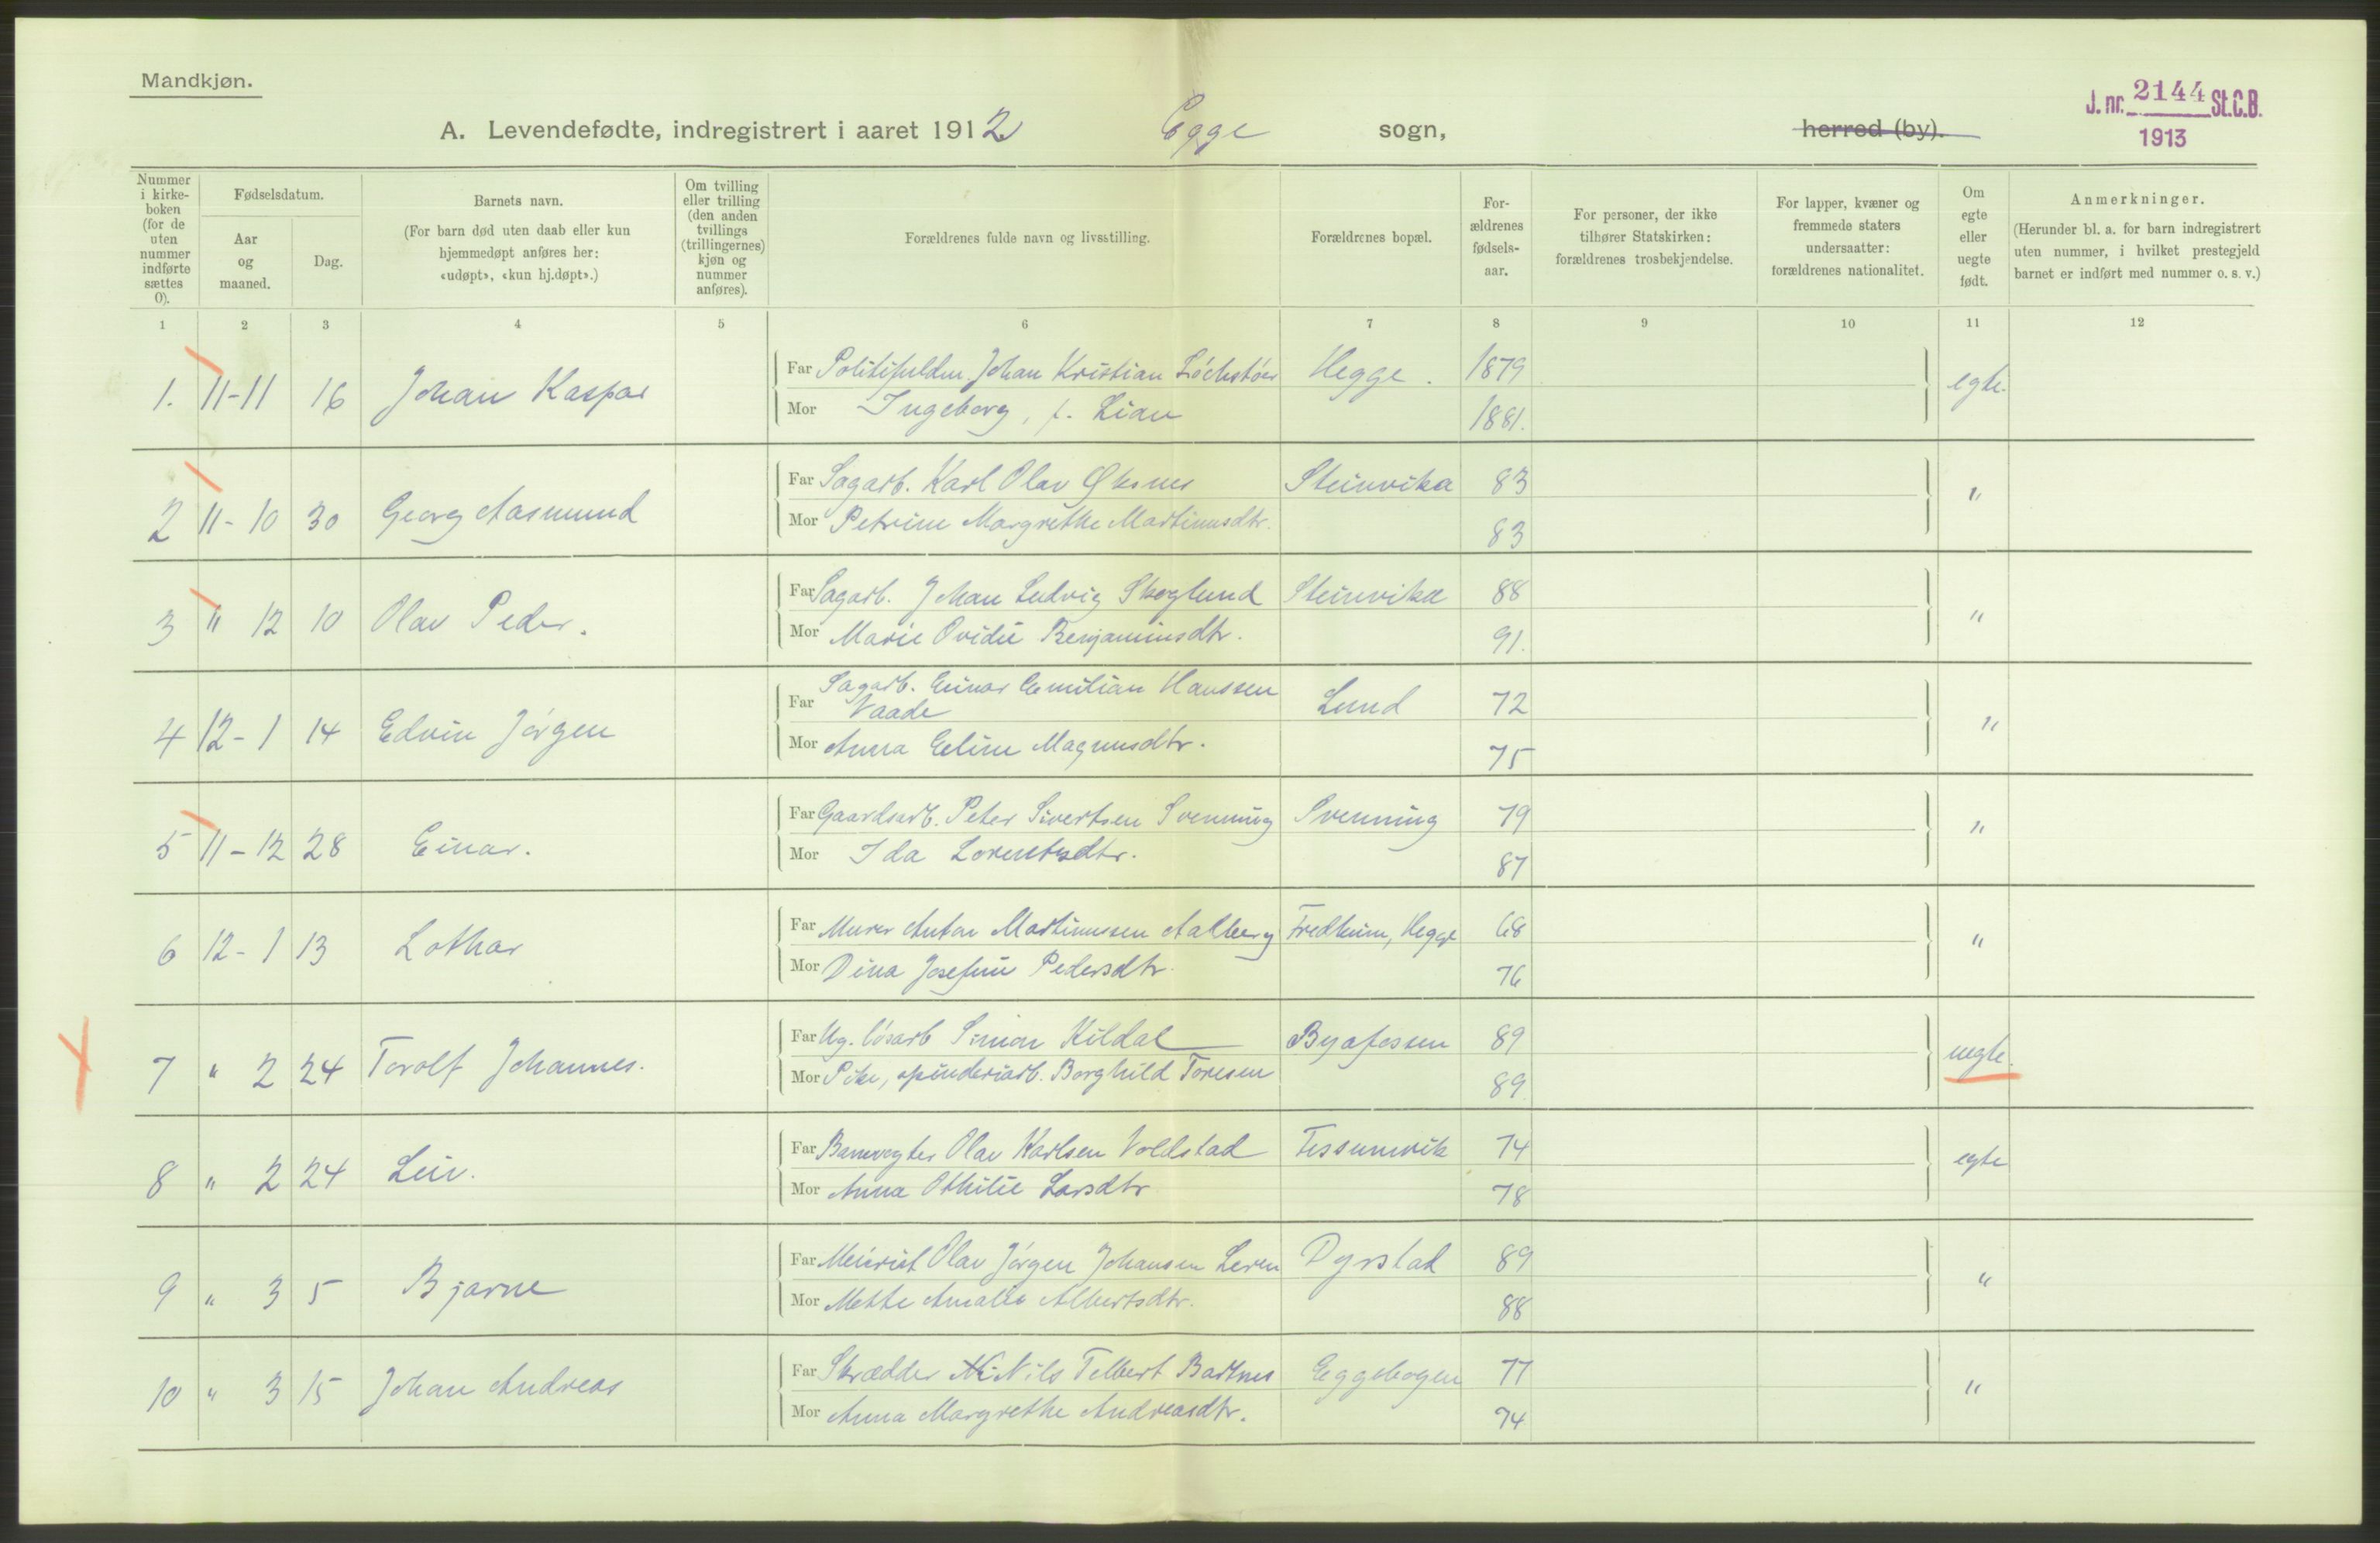 Mandkjøn.
J. nr. 2144 St.C.B.
1913
A. Levendefødte, indregistrert i aaret 1912 Egge sogn, herred (by).
Nummer i kirke-boken (for de uten nummer indførte sættes 0).
Fødselsdatum.
Aar og maaned.
Dag.
Barnets navn.
(For barn død uten daab eller kun hjemmedøpt anføres her: «udøpt», «kun hj.døpt».)
Om tvilling eller trilling (den anden tvillings (trillingernes) kjøn og nummer anføres).
Forældrenes fulde navn og livsstilling.
Forældrenes bopæl.
For-ældrenes fødsels-aar.
For personer, der ikke tilhører Statskirken: forældrenes trosbekjendelse.
For lapper, kvæner og fremmede staters undersaatter: forældrenes nationalitet.
Om egte eller uegte født.
Anmerkninger.
(Herunder bl. a. for barn indregistrert uten nummer, i hvilket prestegjeld barnet er indført med nummer o. s. v.)
1 2 3 4 5 6 7 8 9 10 11 12
1. 11-11 16 Johan Kaspar Far Johan Kristian Hegge. 1879 egte.
Mor Ingeborg, f. Lian 1881.
2 11-10 30 Georg Aasmund Far Sagarb. Karl Olav Øksnes Steinvika 83 "
Mor Petrine Margrethe Martinusdtr. 83
3 " 12 10 Olav Peder. Far Sagarb. Johan Ludvig Skoglund Steinvika 88 "
Mor Marie Ovidie Benjaminsdtr. 91.
4 12-1 14 Edvin Jørgen Far Sagarb. Einar Emilian Hanssen
Vaade Lund 72 "
Mor Anna Eline Magnusdtr. 75
5 11-12 28 Einar. Far Gaardsarb. Peter Sivertsen Svenning Svenning 79 "
Mor Ida Lorentsdtr. 87
6 12-1 13 Lothar Far Murer Anton Martinussen Aalberg Fredheim, Hegge 68 "
Mor Dina Josefine Pedersdtr. 76
7 " 2 24 Torolf Johannes. Far Ug. løsarb Simon Kildal Byafossen 89 uegte.
Mor Pike, spinderiarb. Borghild Toresen 89
8 " 2 24 Leiv. Far Banevogter Olav Karlsen Voldstad 74 egte
Mor Anna Othilie Larsdtr 78
9 " 3 5 Bjarne Far Meierist Olav Jørgen Johansen Leren Dyrstad 89 "
Mor Mette Amalie Albertsdtr. 88
10 " 3 15 Johan Andreas Far Skrædder Nils Bartnes Eggebogen 77 "
Mor Anna Margrethe Andreasdtr. 74